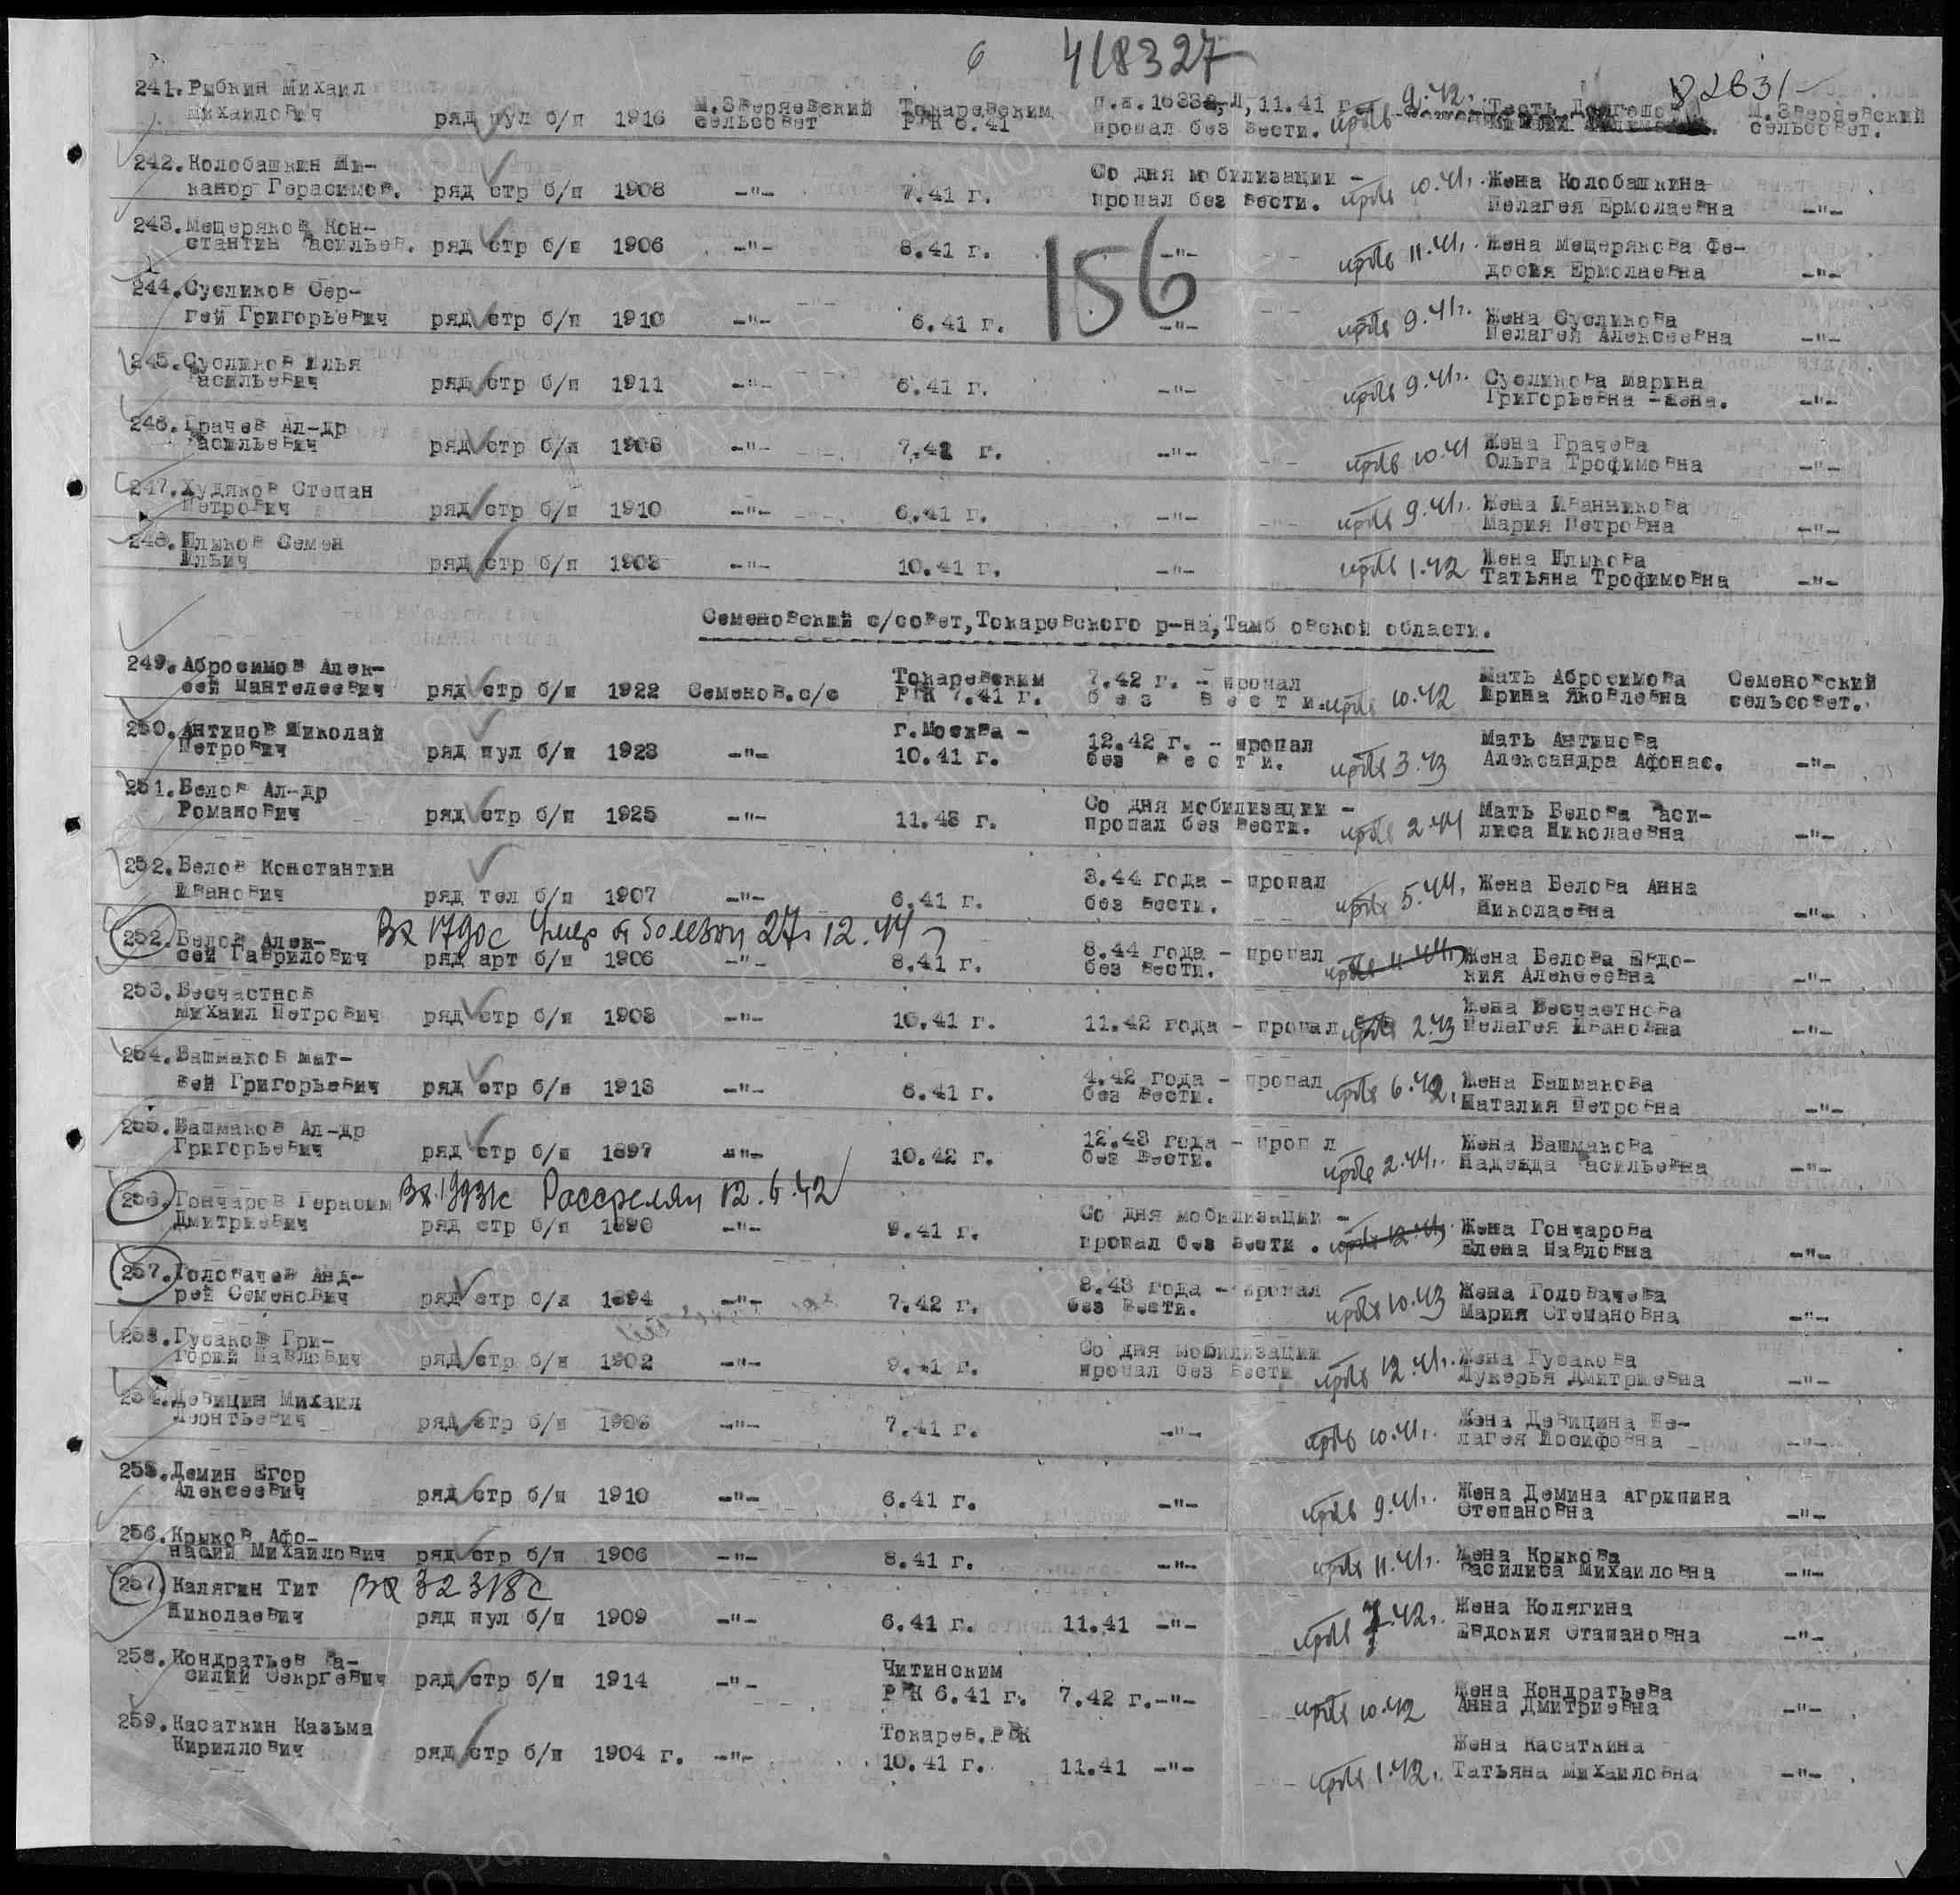 6 418327
241. Рыбкин Михаил
Михаилович ряд пул б/п 1916 М.Зверяевский сельсовет Токаревским РВК 6.41 11.41 г. пропал без вести. 9.42. Тесть М.Зверяевский сельсовет.
242. Колобашкин Ни-
канор Герасимов. ряд стр б/п 1908 -"- 7.41 г. Со дня мобилизации - пропал без вести. 10.41. Жена Колобашкина Пелагея Ермолаевна -"-
243. Мещеряков Кон-
стантин Васильев. ряд стр б/п 1906 -"- 8.41 г. -"- 11.41. Жена Мещерякова Фе-
досья Ермолаевна -"-
156
244. Сусликов Сер-
гей Григорьевич ряд стр б/п 1910 -"- 6.41 г. -"- 9.41г. Жена Сусликова
Пелагея Алексеевна -"-
245. Сусликов Илья
Васильевич ряд стр б/п 1911 -"- 6.41 г. -"- 9.41г. Сусликова Марина
Григорьевна -жена. -"-
246. Грачев Ал-др
Васильевич ряд стр б/п 1908 -"- 7.41 г. -"- 10.41 Жена Грачева
Ольга Трофимовна -"-
247. Худяков Степан
Петрович ряд стр б/п 1910 -"- 6.41 г. -"- 9.41г. Жена Иванникова
Мария Петровна -"-
248. Шлыков Семен
Ильич ряд стр б/п 1903 -"- 10.41 г. -"- 1.42 Жена Шлыкова
Татьяна Трофимовна -"-
Семеновский с/совет,Токаревского р-на,Тамб овской области.
249. Абросимов Алек-
сей Пантелеевич ряд стр б/п 1922 Семенов.с/с Токаревским РВК 7.41 г. 7.42 г. - пропал без вести. 10.42 Мать Абросимова Ирина Яковлевна Семеновский сельсовет.
250. Антипов Николай
Петрович ряд пул б/п 1923 -"- г.Москва - 10.41 г. 12.42 г. - пропал без вести. 3.43 Мать Антипова
Александра Афонас. -"-
251. Белов Ал-др
Романович ряд стр б/п 1925 -"- 11.43 г. Со дня мобилизации - пропал без вести. 2.44 Мать Белова Васи-
лиса Николаевна -"-
252. Белов Константин
Иванович ряд тел б/п 1907 -"- 6.41 г. 3.44 года - пропал без вести. 5.44. Жена Белова Анна
Николаевна -"-
Вх 1790с Умер от болезни 27.12.44
252. Белов Алек-
сей Гаврилович ряд арт б/п 1906 -"- 8.41 г. 8.44 года - пропал без вести. 11.44г. Жена Белова Евдо-
кия Алексеевна -"-
253. Бесчастнов
Михаил Петрович ряд стр б/п 1908 -"- 10.41 г. 11.42 года - пропал 2.43 Жена Бесчастнова
Пелагея Ивановна -"-
254. Башмаков Мат-
вей Григорьевич ряд стр б/п 1913 -"- 6.41 г. 4.42 года - пропал без вести. 6.42. Жена Башмакова
Наталия Петровна -"-
255. Башмаков Ал-др
Григорьевич ряд стр б/п 1897 -"- 10.42 г. 12.43 года - проп л без вести. 2.44. Жена Башмакова
Надежда Васильевна -"-
Расстрелян 12.6.42
256. Гончаров Герасим
Дмитриевич ряд стр б/п 1890 -"- 9.41 г. Со дня мобилизации - пропал без вести . Жена Гончарова
Елена Павловна -"-
257. Головачев Анд-
рей Семенович ряд стр б/п 1894 -"- 7.42 г. 8.43 года - пропал без вести. 10.43 Жена Головачева
Мария Степановна -"-
253. Гусаков Гри-
горий Павлович ряд стр б/п 1902 -"- 9.41 г. Со дня мобилизации пропал без вести 12.41г. Жена Гусакова
Лукерья Дмитриевна -"-
254. Девицин Михаил
Леонтьевич ряд стр б/п 1906 -"- 7.41 г. -"- 10.41г. Жена Девицина Пе-
лагея Иосифовна -"-
255. Демин Егор
Алексеевич ряд стр б/п 1910 -"- 6.41 г. -"- 9.41г. Жена Демина Агрипина
Степановна -"-
256. Крыков Афо-
насий Михаилович ряд стр б/п 1906 -"- 8.41 г. -"- 11.41г. Жена Крыкова
Василиса Михаиловна -"-
257. Калягин Тит Вх 32318с
Николаевич ряд пул б/п 1909 -"- 6.41 г. 11.41 -"- Жена Колягина
Евдокия Стапановна -"-
258. Кондратьев Ва-
силий Секргевич ряд стр б/п 1914 -"- Читинским РВК 6.41 г. 7.42 г.-"- 10.42 Жена Кондратьева
Анна Дмитриевна -"-
259. Касаткин Казьма
Кириллович ряд стр б/п 1904 г. -"- Токарев.РВК 10.41 г. 11.41 -"- 1.42. Жена Касаткина
Татьяна Михаиловна -"-